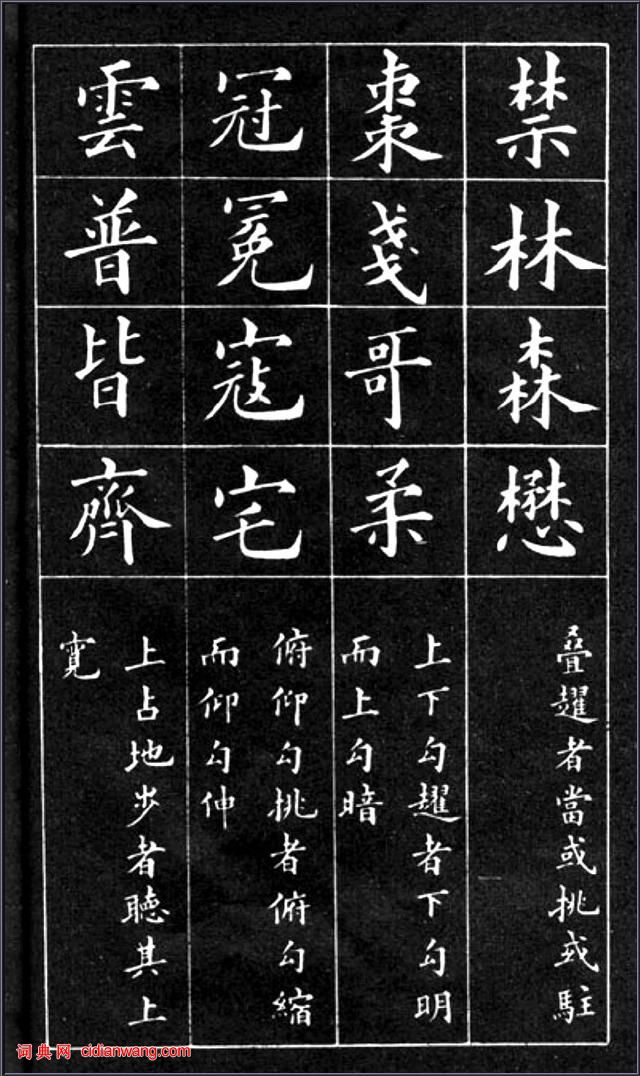 禁林森懋
叠趯者當或挑或駐
棗戔哥柔
上下勾趯者下勾明
而上勾暗
冠冕寇宅
俯仰勾挑者俯勾縮
而仰勾伸
雲普皆齊
上占地步者聽其上
寬
词典网 cidianwang.com